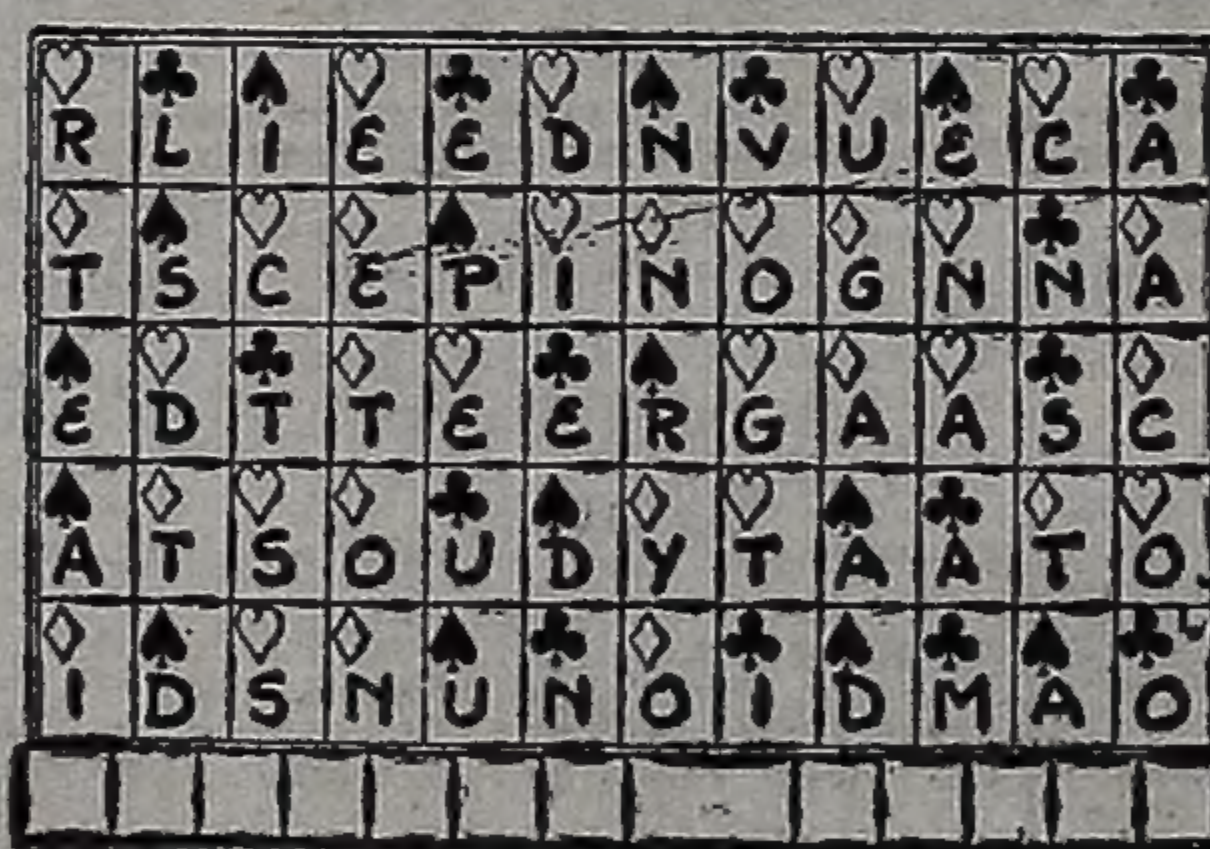 R L I E E D N V U E C A
T S C E P I N O G N N A
E D T T E E R G A A S C
A T S O U D Y T A A T O
I D S N U N O I D M A O